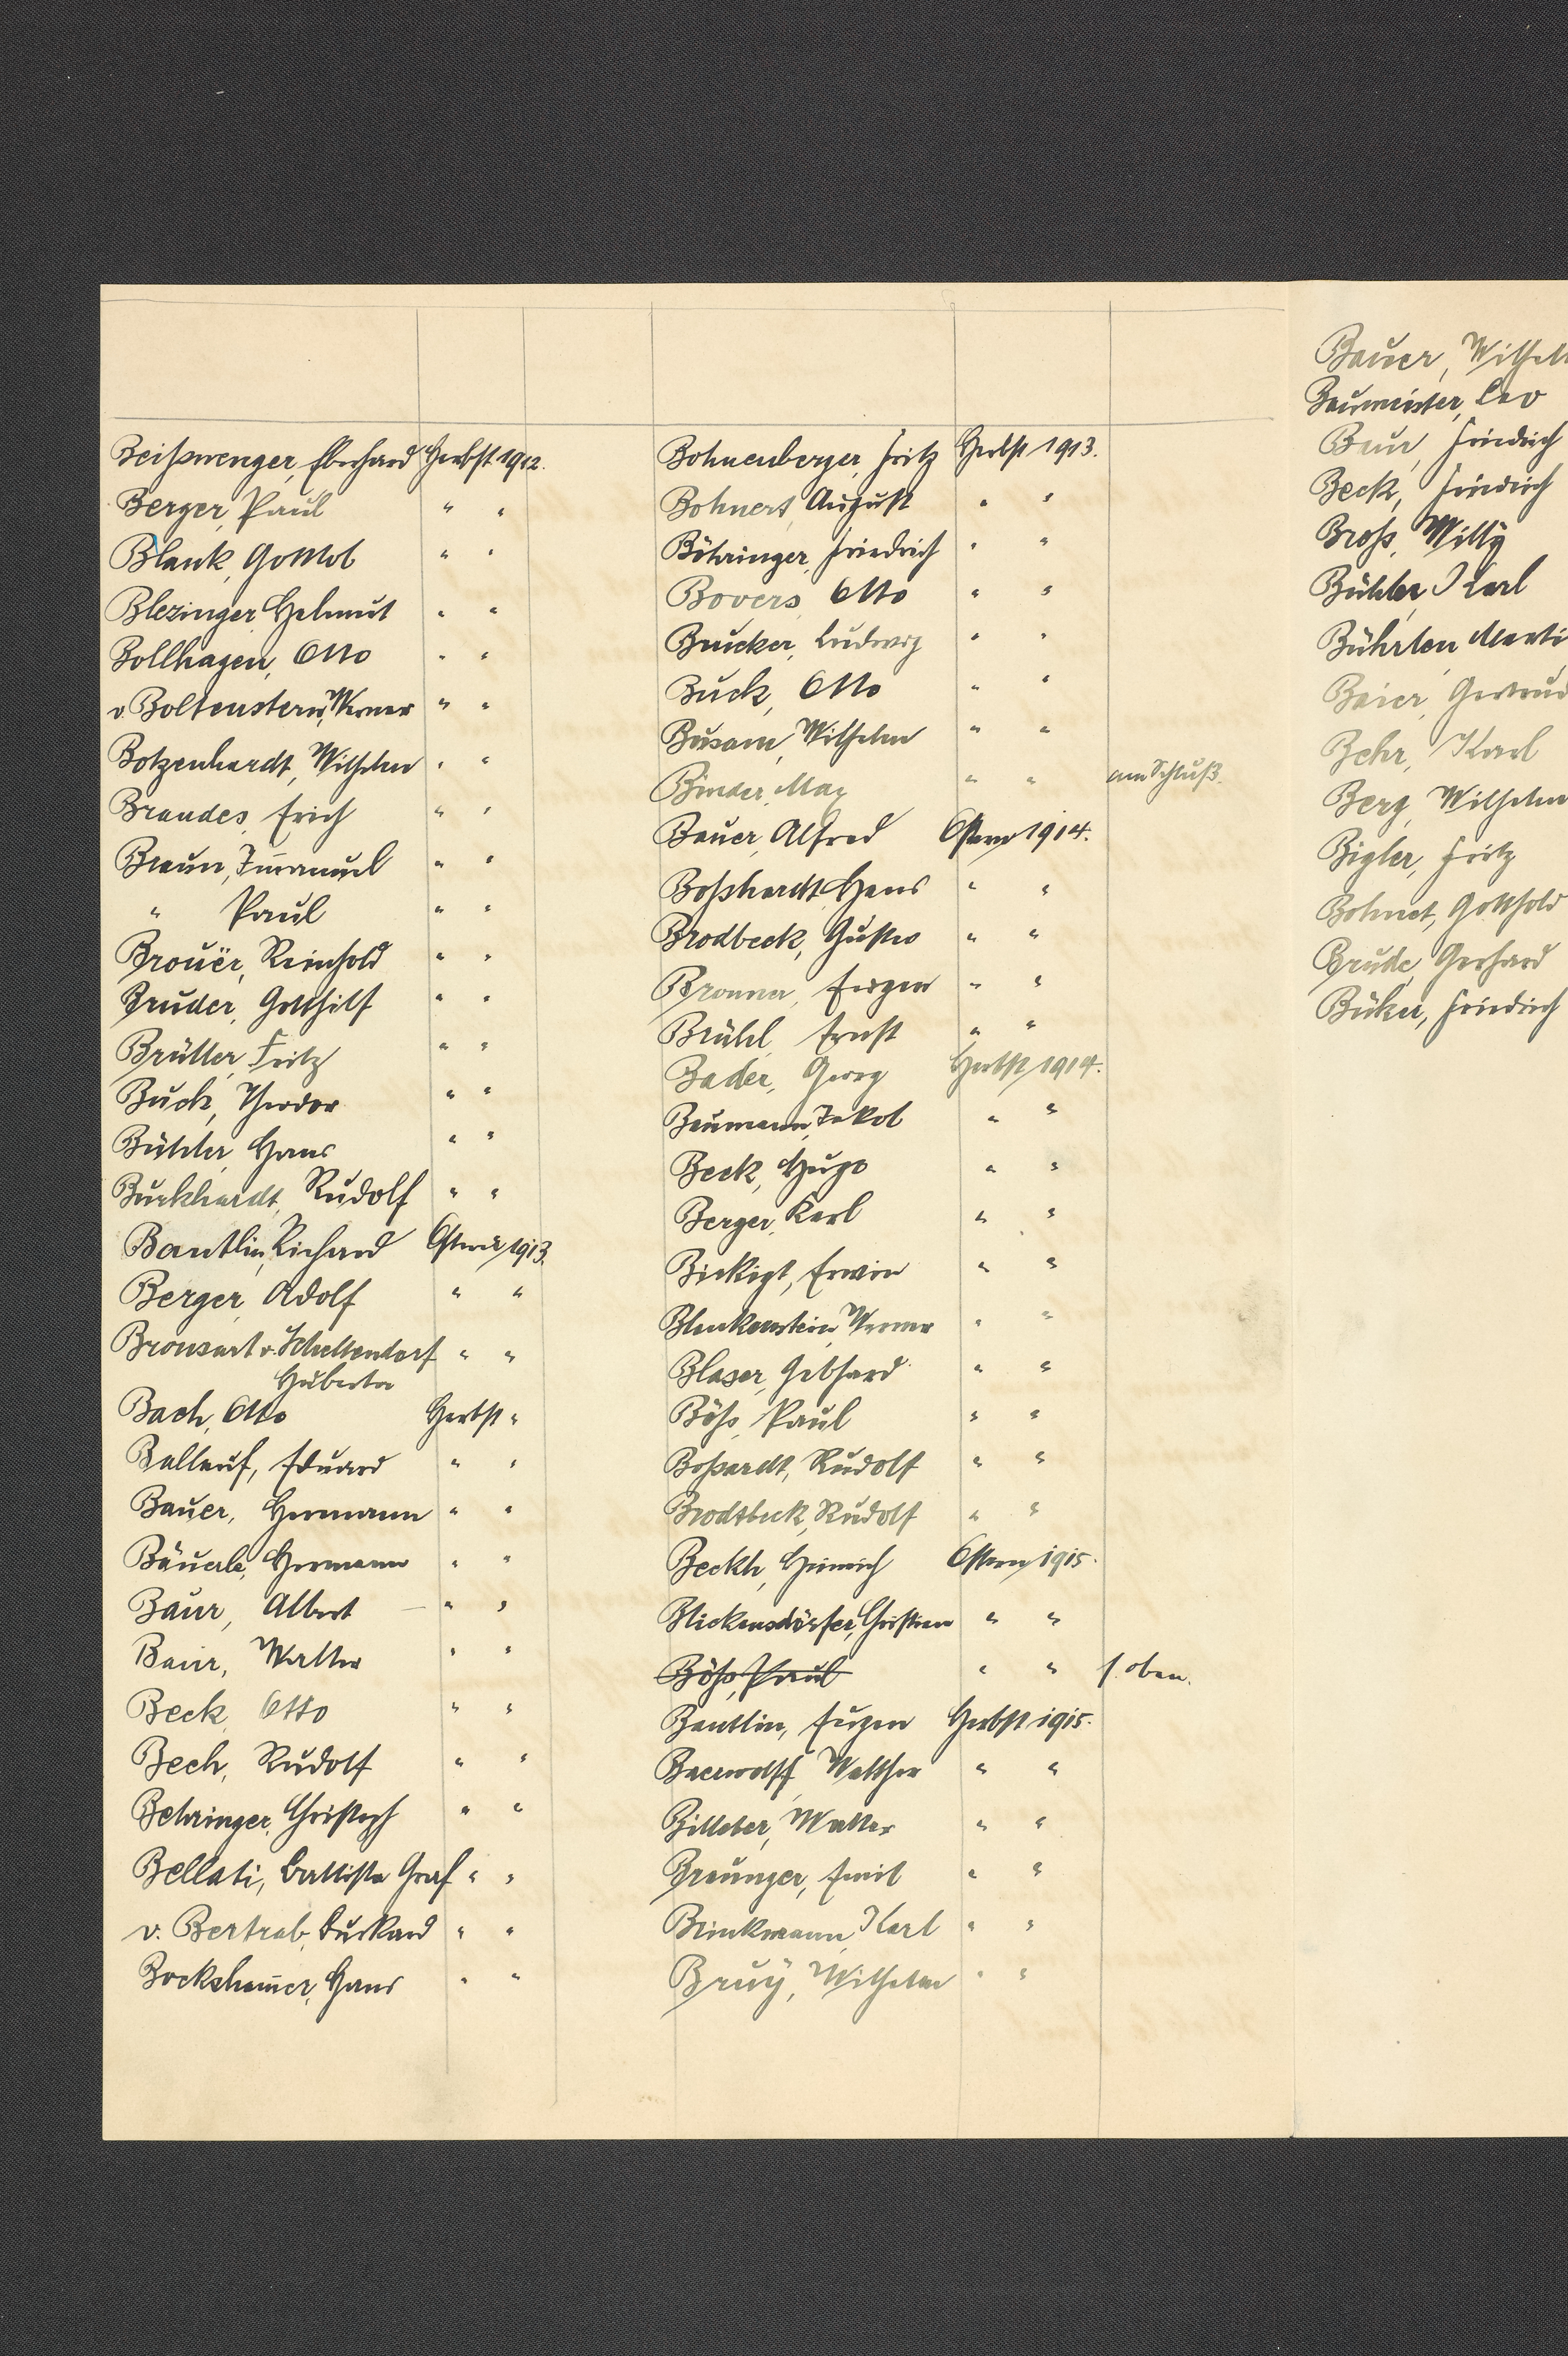 Beißwenger, Eberhard Herbst 1912.
Berger, Paul " "
Blank, Gottlob " "
Blezinger, Helmut " "
Bollhagen, Otto " "
v. Boltenstern, Werner " "
Botzenhardt, Wilhelm " "
Brandes, Erich " "
Braun, Im̄anuel " "
" Paul " "
Brouër, Reinhold " "
Bruder, Gotthilf " "
Brütter, Fritz " "
Buck, Theodor " "
Bühler, Hans " "
Burkhardt, Rudolf " "
Bantlin, Richard Ostern 1913.
Berger, Adolf " "
Bronsart v. Schellendorf " "
Hubertus
Bach, Otto Herbst "
Ballauf, Eduard " "
Bauer, Hermann " "
Bäuerle, Hermann " "
Baur, Albert " "
Baur, Walter " "
Beck, Otto " "
Bech, Rudolf " "
Behringer, Christoph " "
Bellati, Battista Graf " "
v. Bertrab, Burkard " "
Bocksham̄er, Hans " "
Bohnenberger, Fritz Herbst 1913.
Bohnert, August " "
Böhringer, Friedrich " "
Bovers, Otto " "
Brucker, Ludwig " "
Buck, Otto " "
Busam, Wilhelm " "
Binder, Max " " am Schluß.
Bauer, Alfred Ostern 1914.
Boßhardt, Hans " "
Brodbeck, Gustav " "
Bronner, Eugen " "
Brühl, Ernst " "
Bader, Georg Herbst 1914.
Baumann, Jakob " "
Beck, Hugo " "
Berger, Karl " "
Bickigt, Erwin " "
Blankenstein, Werner " "
Blaser, Gebhard " "
Böhs, Paul " "
Boßardt, Rudolf " "
Brodtbeck, Rudolf " "
Beckh, Heinrich Ostern 1915.
Blickensdörfer, Christian " "
Böhs, Paul " " s. oben.
Bantlin, Eugen Herbst 1915.
Baerwolff, Walther " "
Billeter, Walter " "
Braunger, Emil " "
Brinkmann, Karl " "
Bruÿ, Wilhelm " "
Bauer, Wilhelm
Baumeister, Leo
Baur, Friedrich
Beck, Friedrich
Broß, Willy
Bühler, Karl
Bührlen, Marti
Baier, Gertrud
Behr, Karl
Berg, Wilhelm
Bigler, Fritz
Bohnet, Gotthold
Brude, Gerhard
Büker, Friedrich